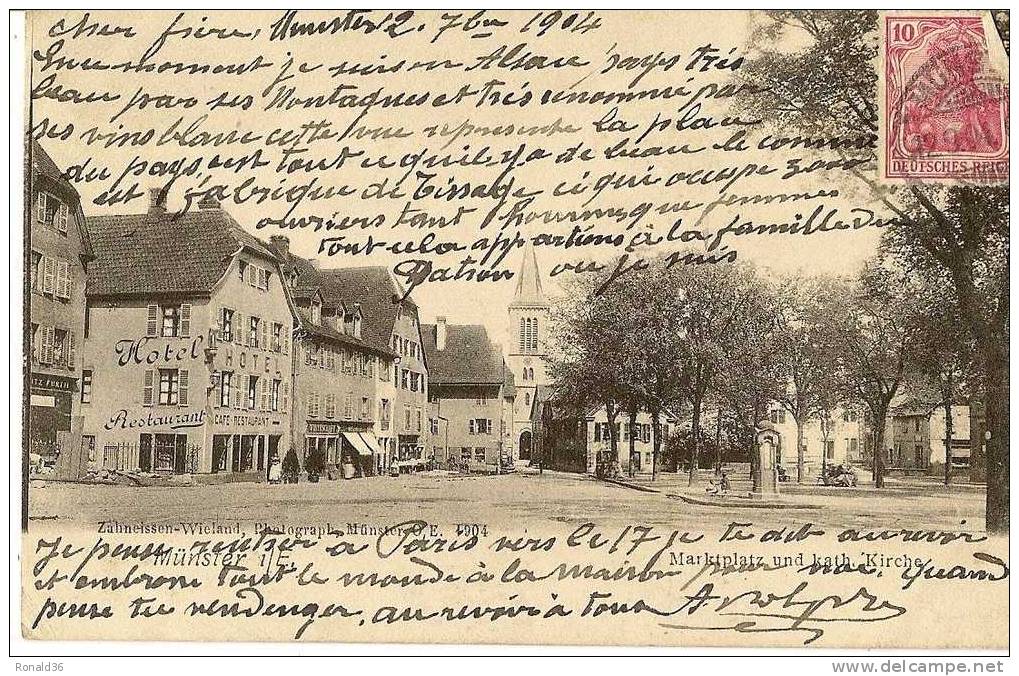 cher frère, Munster 2. 7bre 1904
En ce moment je suis en Alsace pays très
beau par ses Montagnes et très renommé par
ses vins blanc cette vue represente la place
du pays, est tout ce qu'il y a de beau le comme
est fabrique de Tissage ci qui occupe 3000
ouvriers tant hommes que femmes
tout cela appartiens à la famille du
Patron ou je suis
10
DEUTSCHES REICH
Hotel
HOTEL
Restaurant
CAFE-RESTAURANT
Zahneissen-Wieland, Photograph, Münster O/E. 1904
Je pense rentrer à Paris vers le 17 je te dit au revoir
Münster i/E.
Marktplatz und kath. Kirche
et embrasse tout le monde à la maison pour moi, quand
pense tu vendenger, au revoir à tous
Ronald36
http://www.delcampe.net